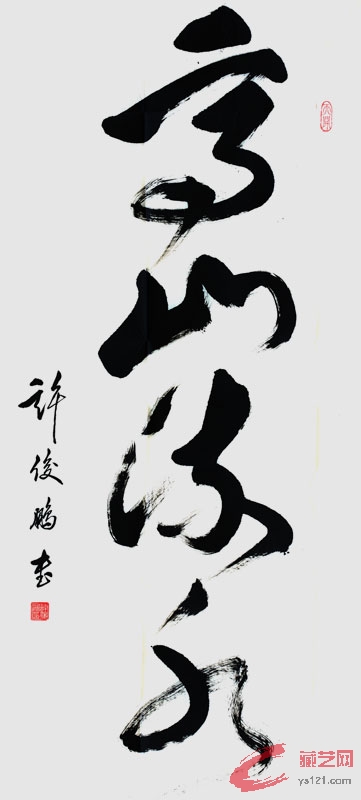 高山流水
许俊鹏书
藏艺网
ys121.com